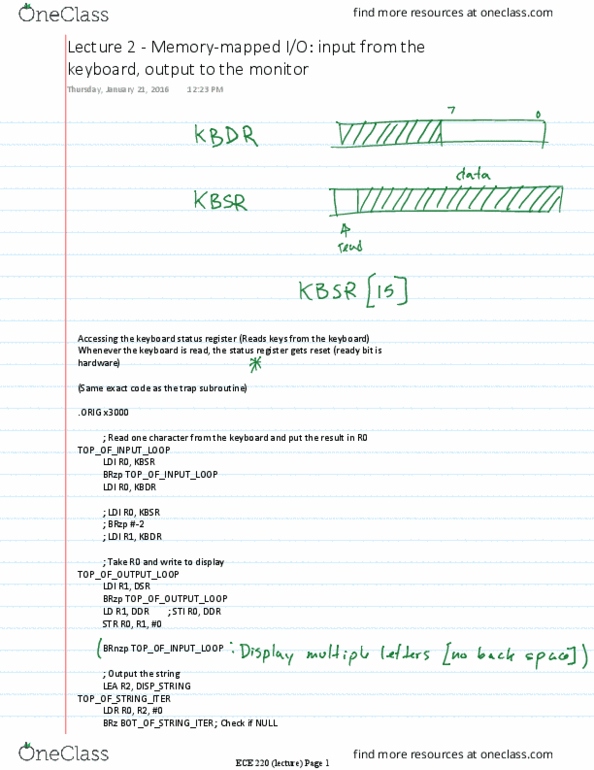 OneClass
find more resources at oneclass.com
Lecture 2 - Memory-mapped I/O: input from the
keyboard, output to the monitor
Thursday, January 21, 2016 12:23 PM
7 0
KBDR
data
KBSR
read
KBSR [15]
Accessing the keyboard status register (Reads keys from the keyboard)
Whenever the keyboard is read, the status register gets reset (ready bit is
hardware)
*
(Same exact code as the trap subroutine)
.ORIG x3000
; Read one character from the keyboard and put the result in R0
TOP_OF_INPUT_LOOP
LDI R0, KBSR
BRzp TOP_OF_INPUT_LOOP
LDI R0, KBDR
; LDI R0, KBSR
; BRzp #-2
; LDI R1, KBDR
; Take R0 and write to display
TOP_OF_OUTPUT_LOOP
LDI R1, DSR
BRzp TOP_OF_OUTPUT_LOOP
LD R1, DDR ; STI R0, DDR
STR R0, R1, #0
(BRnzp TOP_OF_INPUT_LOOP : Display multiple letters [no back space])
; Output the string
LEA R2, DISP_STRING
TOP_OF_STRING_ITER
LDR R0, R2, #0
BRz BOT_OF_STRING_ITER; Check if NULL
ECE 220 (lecture) Page 1
OneClass
find more resources at oneclass.com